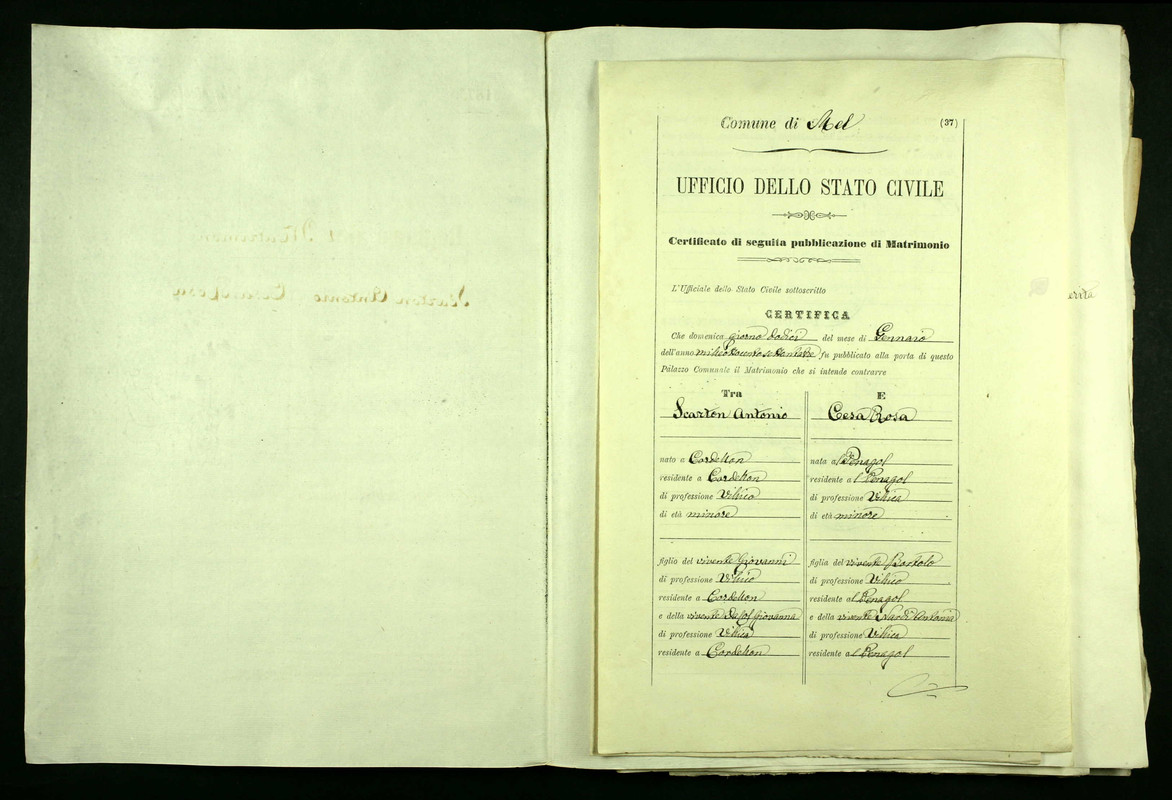 Comune di Mel
(37)
UFFICIO DELLO STATO CIVILE
Certificato di seguita pubblicazione di Matrimonio
L'Ufficiale dello Stato Civile sottoscritto
CERTIFICA
Che domenica giorno dodici del mese di Gennaro
dell'anno fu pubblicato alla porta di questo
Palazzo Comunale il Matrimonio che si intende contrarre
Tra
Scarton Antonio
nato a Cordellon
residente a Cordellon
di professione Villico
di età minore
figlio del vivente Giovanni
di professione Villico
residente a Cordellon
e della vivente Giovanna
di professione Villica
residente a Cordellon
E
Cesa Rosa
nata a Penagol
residente a Penagol
di professione Villica
di età minore
figlia del vivente Bortolo
di professione Villico
residente a Penagol
e della vivente Nardi Antonia
di professione Villica
residente a Penagol